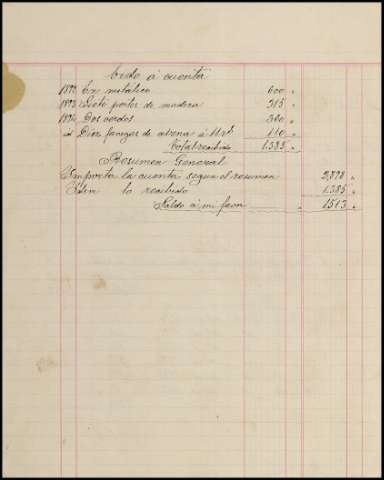 á cuenta
En metalico 600 "
Siete portes de madera 315 "
1894 Dos cerdos 360 "
id Diez fanegas de abena á 110 "
Total recibido 1.385 "
Resumen General
Importa la cuenta segun el resumen 2,898 "
Idem lo recibido 1.385 "
Saldo á mi favor " 1513 "